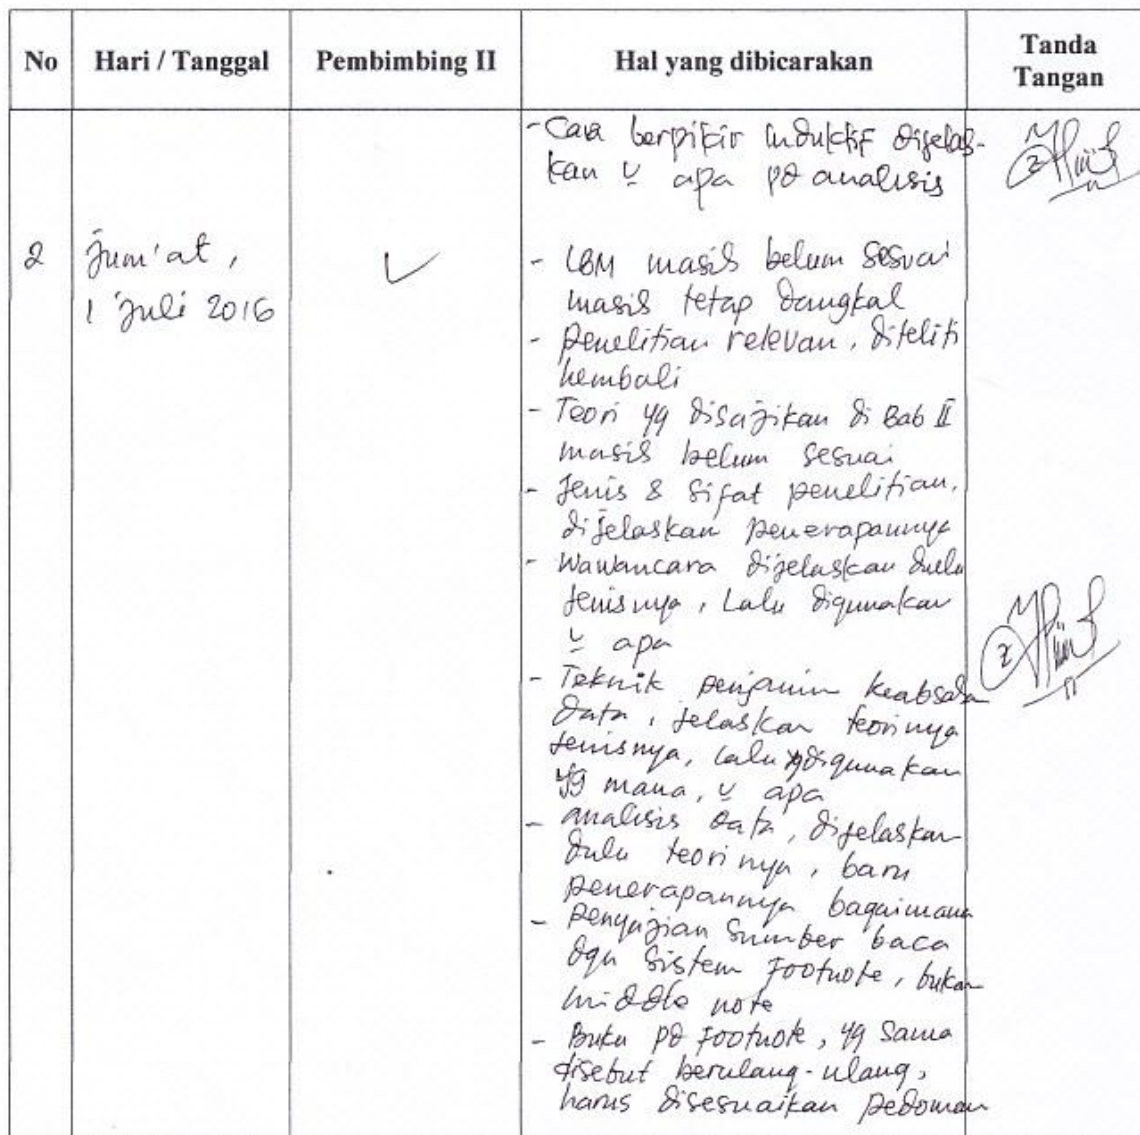 No Hari / Tanggal Pembimbing II Hal yang dibicarakan Tanda Tangan
- Cara berpikir induktif dijelas-
kan u apa pd analisis
2 Jum'at, 1 Juli 2016 ✓
- LBM masih belum sesuai
masih tetap dangkal
- Penelitian relevan, diteliti
kembali
- Teori yg disajikan di Bab II
masih belum sesuai
- Jenis & Sifat penelitian,
dijelaskan penerapannya
- Wawancara dijelaskan dulu
jenisnya, Lalu digunakan
u apa
- Teknik penjamin keabsahan
data, jelaskan teorinya
jenisnya, lalu digunakan
yg mana, u apa
- analisis data, dijelaskan
dulu teorinya, baru
penerapannya bagaimana
- Penyajian Sumber baca
dgn Sistem Footnote, bukan
middle note
- Buku pd Footnote, yg sama
disebut berulang-ulang,
harus disesuaikan pedoman